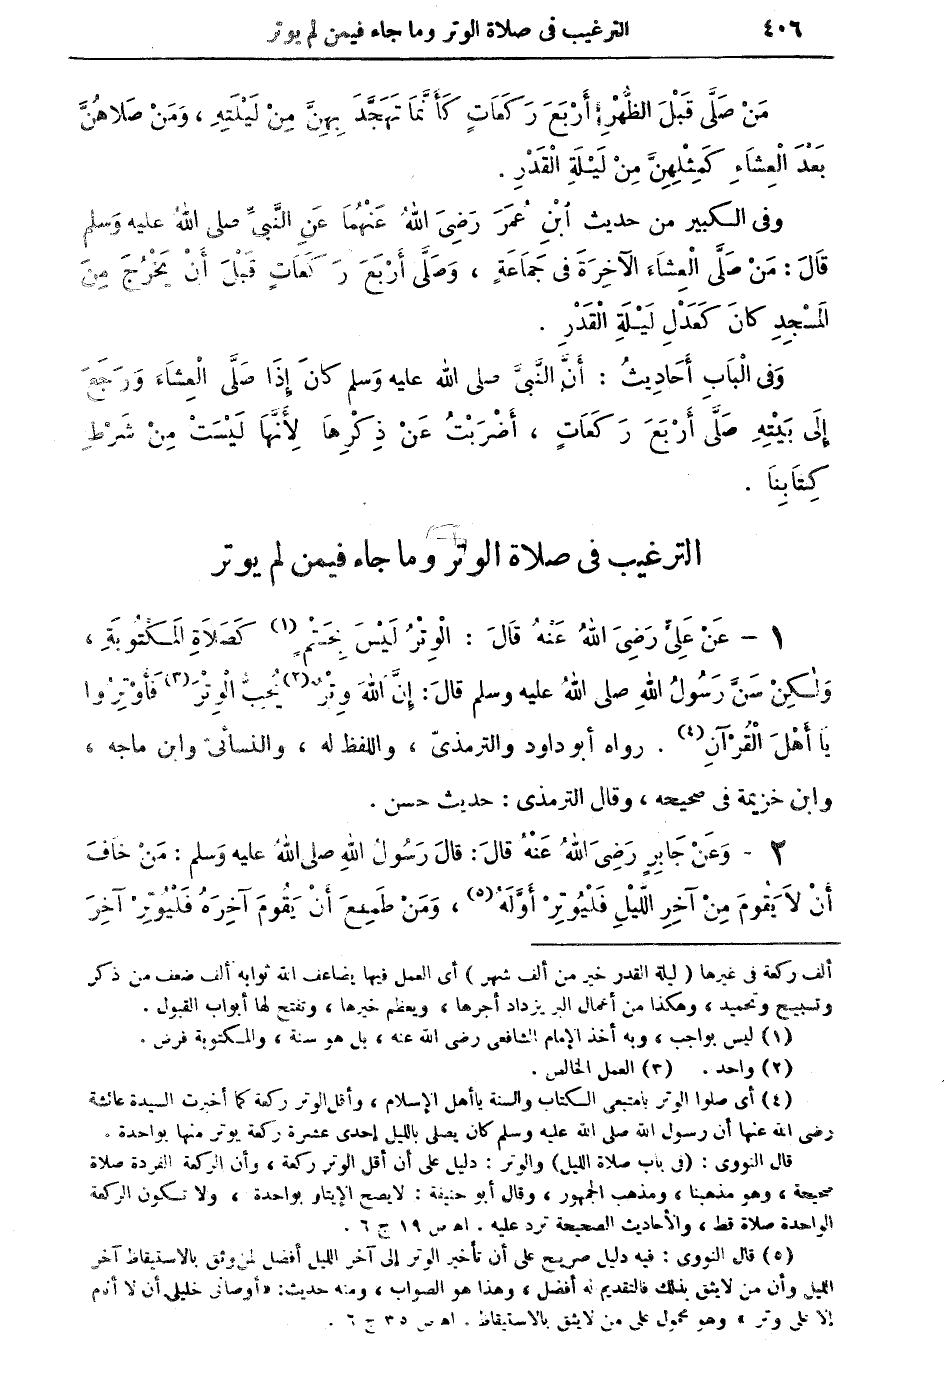 ٤٠٦ الترغيب فى صلاة الوتر وما جاء فيمن لم يوتر
مَنْ صَلَّى قَبْلَ الظُّهْرِ أَرْبَعَ رَكَعَاتٍ كَأَنَّمَا تَهَجَّدَ بِهِنَّ مِنْ لَيْلَتِهِ ، وَمَنْ صَلاهُنَّ
بَعْدَ الْعِشَاءِ كَمِثْلِهِنَّ مِنْ لَيْلَةِ الْقَدْرِ .
وفى الكبير من حديث ابْنِ عُمَرَ رَضِىَ اللهُ عَنْهُمَا عَنِ النَّبىِّ صلى اللهُ عليه وَسلم
قَالَ : مَنْ صَلَّى الْعِشَاءَ الآخِرَةَ فى جَمَاعَةٍ ، وَصَلَّى أَرْبَعَ رَكَعَاتٍ قَبْلَ أَنْ يَخْرُجَ مِنَ
المَسْجِدِ كانَ كَعَدْلِ لَيْلَةِ الْقَدْرِ .
وَفى الْبَابِ أَحَادِيثُ : أَنَّ النَّبىَّ صلى الله عليه وَسلم كانَ إِذَا صَلَّى الْعِشَاءَ وَرَجَعَ
إِلَى بَيْتِهِ صَلَّى أَرْبَعَ رَكَعَاتٍ ، أَضْرَبْتُ عَنْ ذِكْرِهَا لِأَنَّهَا لَيْسَتْ مِنْ شَرْطِ
كِتَابِنَا .
الترغيب فى صلاة الوتر وما جاء فيمن لم يوتر
١ – عَنْ عَلىٍّ رَضِىَ اللهُ عَنْهُ قَالَ : الْوِتْرُ لَيْسَ بِحَتْمٍ (١) كَصَلَاةِ المَكْتُوبَةِ ،
وَلٰكِنْ سَنَّ رَسُولُ اللهِ صلى اللهُ عليه وسلم قالَ : إِنَّ اللهَ وِتْرٌ (٢) يُحِبُّ الْوِتْرَ (٣) فَأَوْتِرُوا
يَا أَهْلَ الْقُرْآنِ (٤) . رواه أبو داود والترمذىّ ، واللفظ له ، والنسائى وابن ماجه ،
وابن خزيمة فى صحيحه ، وقال الترمذى : حديث حسن .
٢ - وَعَنْ جَابِرٍ رَضِىَ اللهُ عَنْهُ قَالَ : قالَ رَسُولُ اللهِ صلى اللهُ عليه وَسلم : مَنْ خَافَ
أَنْ لاَ يَقُومَ مِنْ آخِرِ اللَّيْلِ فَلْيُوتِرْ أَوَّلَهُ (٥) ، وَمَنْ طَمِعَ أَنْ يَقُومَ آخِرَهُ فَلْيُوتِرْ آخِرَ
ألف ركعة فى غيرها ( ليلة القدر خير من ألف شهر ) أى العمل فيها يضاعف الله ثوابه ألف ضعف من ذكر
وتسبيح وتحميد ، وهكذا من أعمال البر يزداد أجرها ، ويعظم خيرها ، وتفتح لها أبواب القبول .
(١) ليس بواجب ، وبه أخذ الإمام الشافعى رضى الله عنه ، بل هو سنة ، والمكتوبة فرض .
(٢) واحد . (٣) العمل الخالص .
(٤) أى صلوا الوتر يامتبعى الكتاب والسنة ياأهل الإسلام ، وأقل الوتر ركعة كما أخبرت السيدة عائشة
رضى الله عنها أن رسول الله صلى الله عليه وسلم كان يصلى بالليل إحدى عشرة ركعة يوتر منها بواحدة .
قال النووى : (فى باب صلاة الليل) والوتر : دليل على أن أقل الوتر ركعة ، وأن الركعة الفردة صلاة
صحيحة ، وهو مذهبنا ، ومذهب الجمهور ، وقال أبو حنيفة : لايصح الإيتار بواحدة ، ولا تكون الركعة
الواحدة صلاة قط ، والأحاديث الصحيحة ترد عليه . اه ص ١٩ ج ٦ .
(٥) قال النووى : فيه دليل صريح على أن تأخير الوتر إلى آخر الليل أفضل لمن وثق بالاستيقاظ آخر
الليل وأن من لايثق بذلك فالتقديم له أفضل ، وهذا هو الصواب ، ومنه حديث: «أوصانى خليلى أن لا أنام
إلا على وتر » وهو محمول على من لايثق بالاستيقاظ . اه ص ٣٥ ج ٦ .